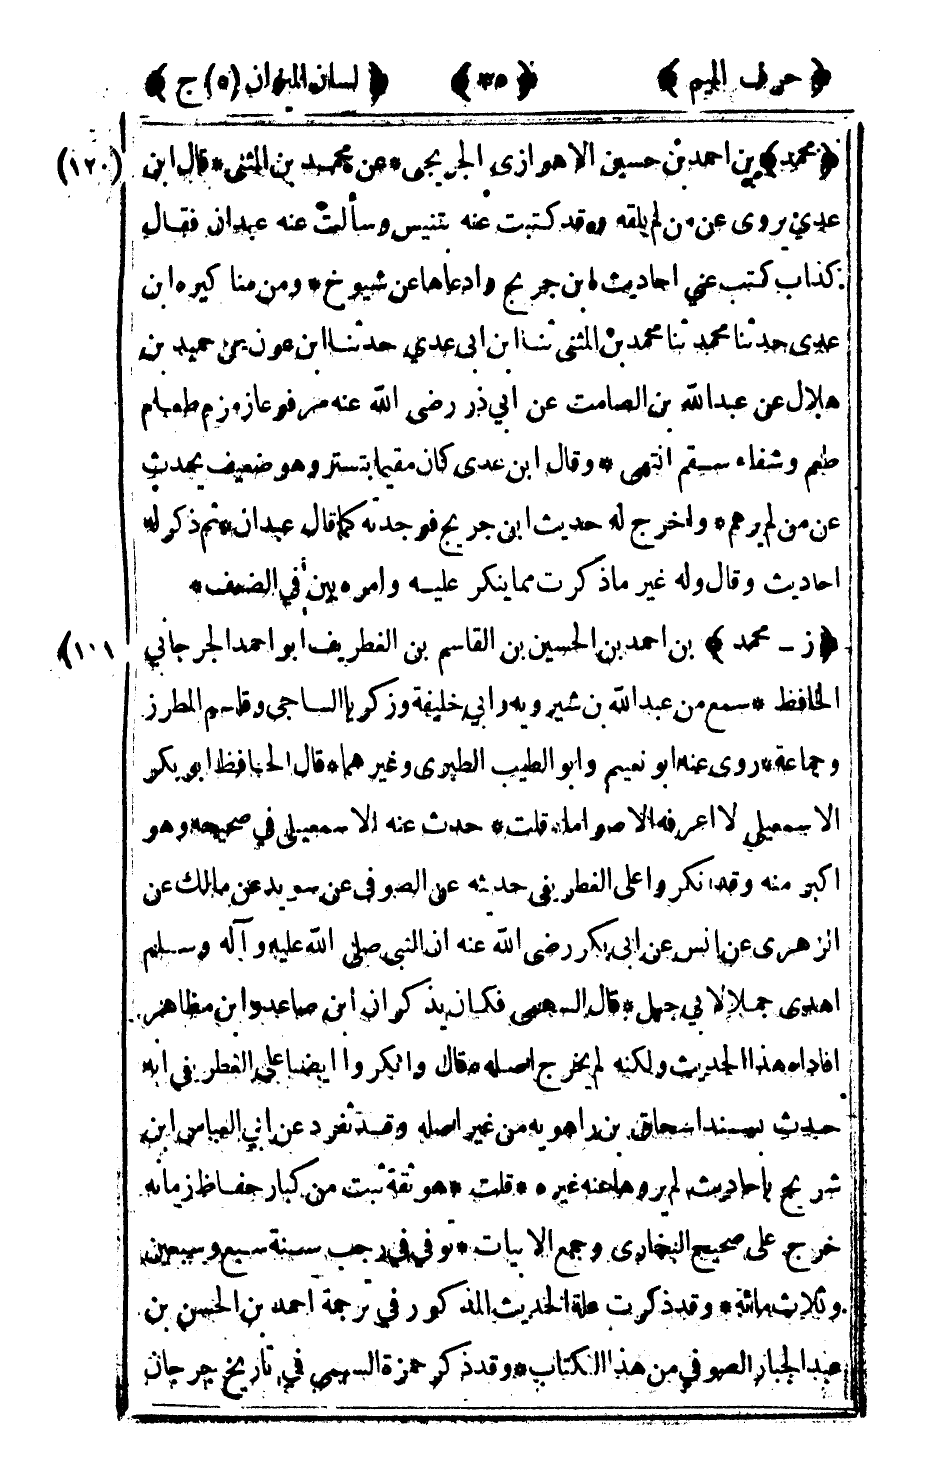 ﴿ حرف الميم ﴾ ﴿ ٣٥ ﴾ ﴿ لسان الميزان (٥) ج ﴾
﴿ محمد ﴾ بن احمد بن حسين الاهوازى الجريجى * عن محمد بن المثنى * قال ابن (١٢٠)
عدي يروى عن من لم يلقه وقد كتبت عنه بتنيس وسألت عنه عبدان فقال
كذاب كتب عني احاديث ابن جريج وادعاها عن شيوخ * ومن مناكيره ابن
عدى حدثنا محمد ثنا محمد بن المثنى ثنا ابن ابى عدي حدثنا ابن عون عن حميد بن
هلال عن عبدالله بن الصامت عن ابي ذر رضى الله عنه مرفوعا زمزم طعام
طعم وشفاء سقم انتهى * وقال ابن عدى كان مقيما بتستر وهو ضعيف يحدث
عن من لم يرهم * واخرج له حديث ابن جريج فوجدته كما قال عبدان * ثم ذكر له
احاديث وقال وله غير ماذكرت مما ينكر عليه وامره بين في الضعف *
﴿ ز - محمد ﴾ بن احمد بن الحسين بن القاسم بن الغطريف ابو احمد الجرجاني (١٠١)
الحافظ * سمع من عبدالله بن شيرويه وابي خليفة وزكريا الساجى وقاسم المطرز
وجماعة * روى عنه ابو نعيم وابو الطيب الطبرى وغيرهما * قال الحافظ ابو بكر
الاسمعيلي لا اعرفه الا صواما * قلت * حدث عنه الاسمعيلي في صحيحه وهو
اكبر منه وقد انكروا على الغطريفى حديثه عن الصوفى عن سويد عن مالك عن
الزهرى عن انس عن ابى بكر رضى الله عنه ان النبى صلى الله عليه وآله وسلم
اهدى جملا لابي جهل * قال السهمى فكان يذكر ان ابن صاعد وابن مظاهر
افاداه هذا الحديث ولكنه لم يخرج اصله * قال وانكروا ايضا على الغطريفي انه
حدث بمسند اسحاق بن راهويه من غير اصله وقد تفرد عن ابي العباس ابن
شريح باحاديث لم يروها عنه غيره * قلت * هو ثقة ثبت من كبار حفاظ زمانه
خرج على صحيح البخارى وجمع الابيات * توفي في رجب سنة سبع وسبعين
وثلاث مائة * وقد ذكرت علة الحديث المذكور في ترجمة احمد بن الحسن بن
عبد الجبار الصوفي من هذا الكتاب * وقد ذكر حمزة السهمى في تاريخ جرجان